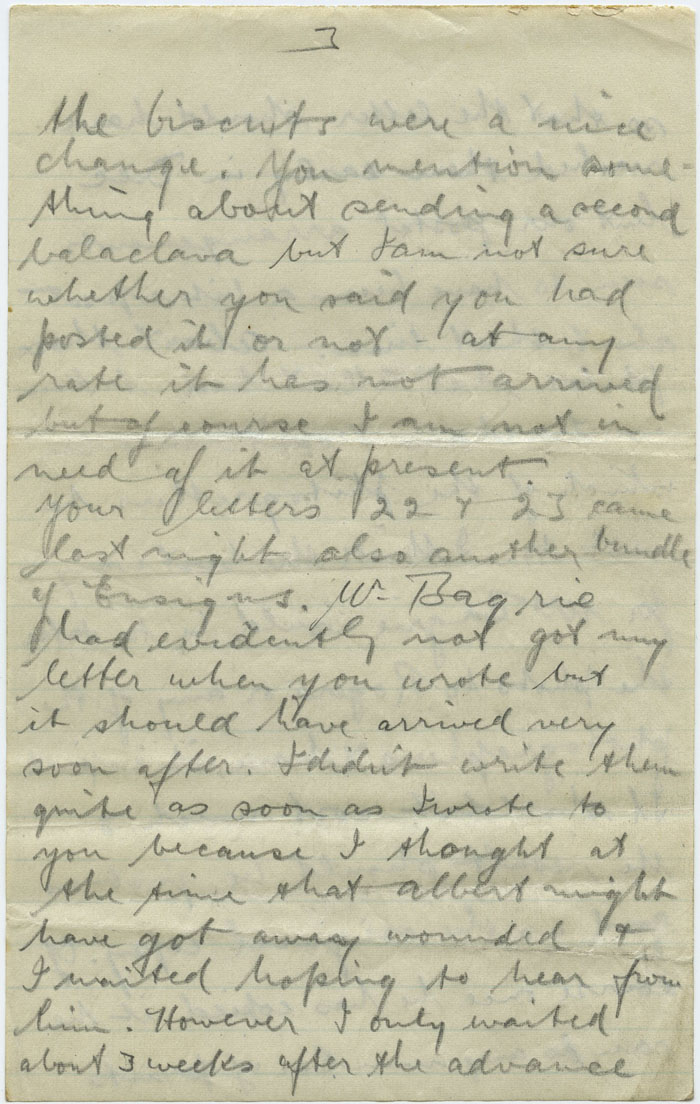 3
the biscuits were a nice
change. You mention some=
thing about sending a second
balaclava but I am not sure
whether you said you had
posted it or not - at any
rate it has not arrived
but of course I am not in
need of it at present.
Your letters 22 & 23 came
last night also another bundle
of Ensigns. Mr Bagrie
had evidently not got my
letter when you wrote but
it should have arrived very
soon after. I didn't write them
quite as soon as I wrote to
you because I thought at
the time that Albert might
have got away wounded &
I waited hoping to hear from
him. However I only waited
about 3 weeks after the advance